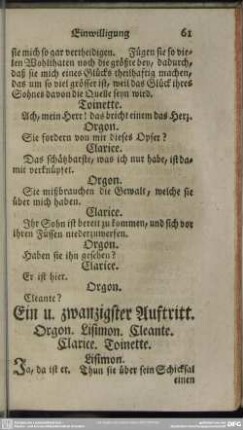 Einwilligung 61
sie mich so gar vertheidigen. Fügen sie so vie-
len Wohlthaten noch die größte bey, dadurch,
daß sie mich eines Glücks theilhaftig machen,
das um so viel grösser ist, weil das Glück ihres
Sohnes davon die Quelle seyn wird.
Toinette.
Ach, mein Herr! das bricht einem das Herz.
Orgon.
Sie fordern von mir dieses Opfer?
Clarice.
Das schätzbarste, was ich nur habe, ist da-
mit verknüpfet.
Orgon.
Sie mißbrauchen die Gewalt, welche sie
über mich haben.
Clarice.
Ihr Sohn ist bereit zu kommen, und sich vor
ihren Füssen niederzuwerfen.
Orgon.
Haben sie ihn gesehen?
Clarice.
Er ist hier.
Orgon.
Cleante?
Ein u. zwanzigster Auftritt.
Orgon. Lisimon. Cleante.
Clarice. Toinette.
Lisimon.
Ja, da ist er. Thun sie über sein Schicksal
einen